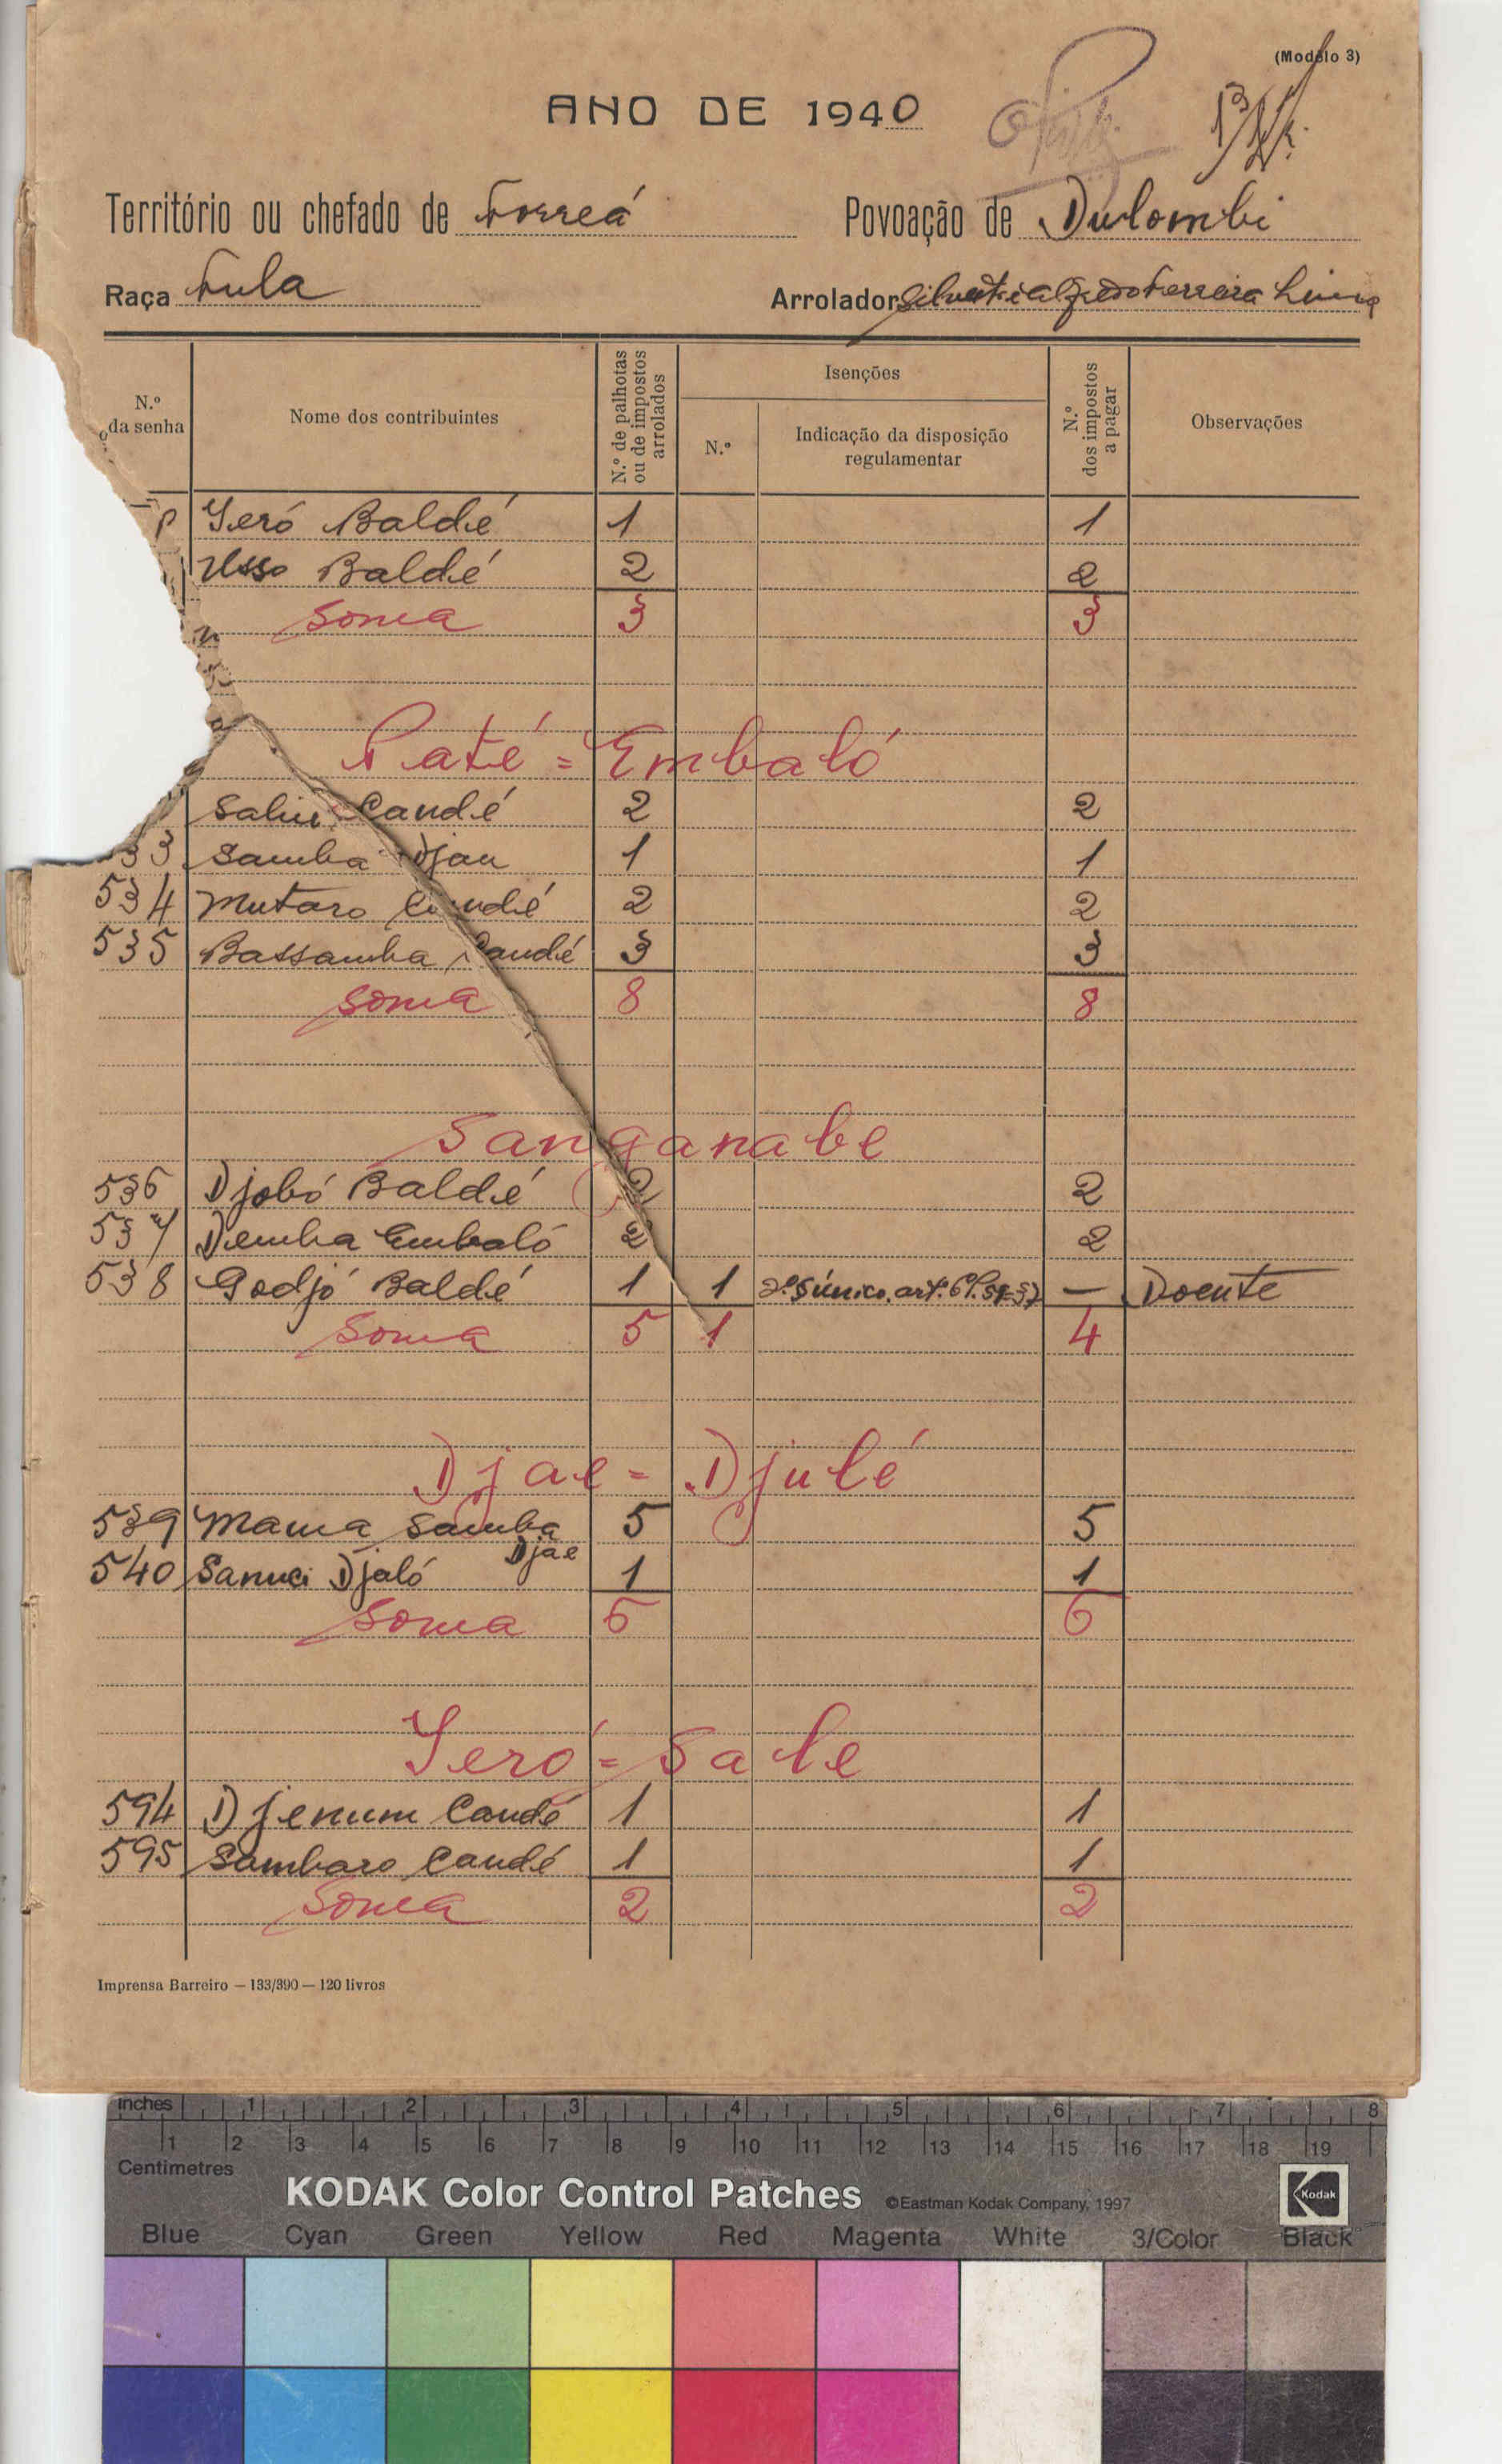 (Modêlo 3)
ANO DE 1940
Território ou chefado de Forreá Povoação de Dulombi
Raça Fula Arrolador Ferreira Lima
N.º da senha
Nome dos contribuintes
N.º de palhotas ou de impostos arrolados
Isenções
N.º
Indicação da disposição regulamentar
N.º dos impostos a pagar
Observações
Ieró Baldé 1 1
Usso Baldé 2 2
Soma 3 3
Paté = Embaló
Saliu Candé 2 2
33 Samba Djau 1 1
534 Mutaro Candé 2 2
535 Bassamba Candé 3 3
Soma 8 8
Sanganabe
536 Djobó Baldé 2 2
537 Demba Embaló 2 2
538 Godjó Baldé 1 1 2º § único. art.º 6º — Doente
Soma 5 1 4
Djae = Djulé
539 Mama Samba Djae 5 5
540 Sanuci Djaló 1 1
Soma 6 6
Ieró = Sale
594 Djenum Candé 1 1
595 Sambaro Candé 1 1
Soma 2 2
Imprensa Barreiro — 133/390 — 120 livros
inches 1 2 3 4 5 6 7 8
1 2 3 4 5 6 7 8 9 10 11 12 13 14 15 16 17 18 19
Centimetres
KODAK Color Control Patches ©Eastman Kodak Company, 1997 Kodak
Blue Cyan Green Yellow Red Magenta White 3/Color Black